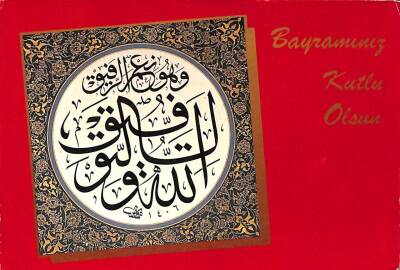 الله ولي التوفيق
وهو نعم الرفيق
١٤٠٦
Bayramınız
Kutlu
Olsun